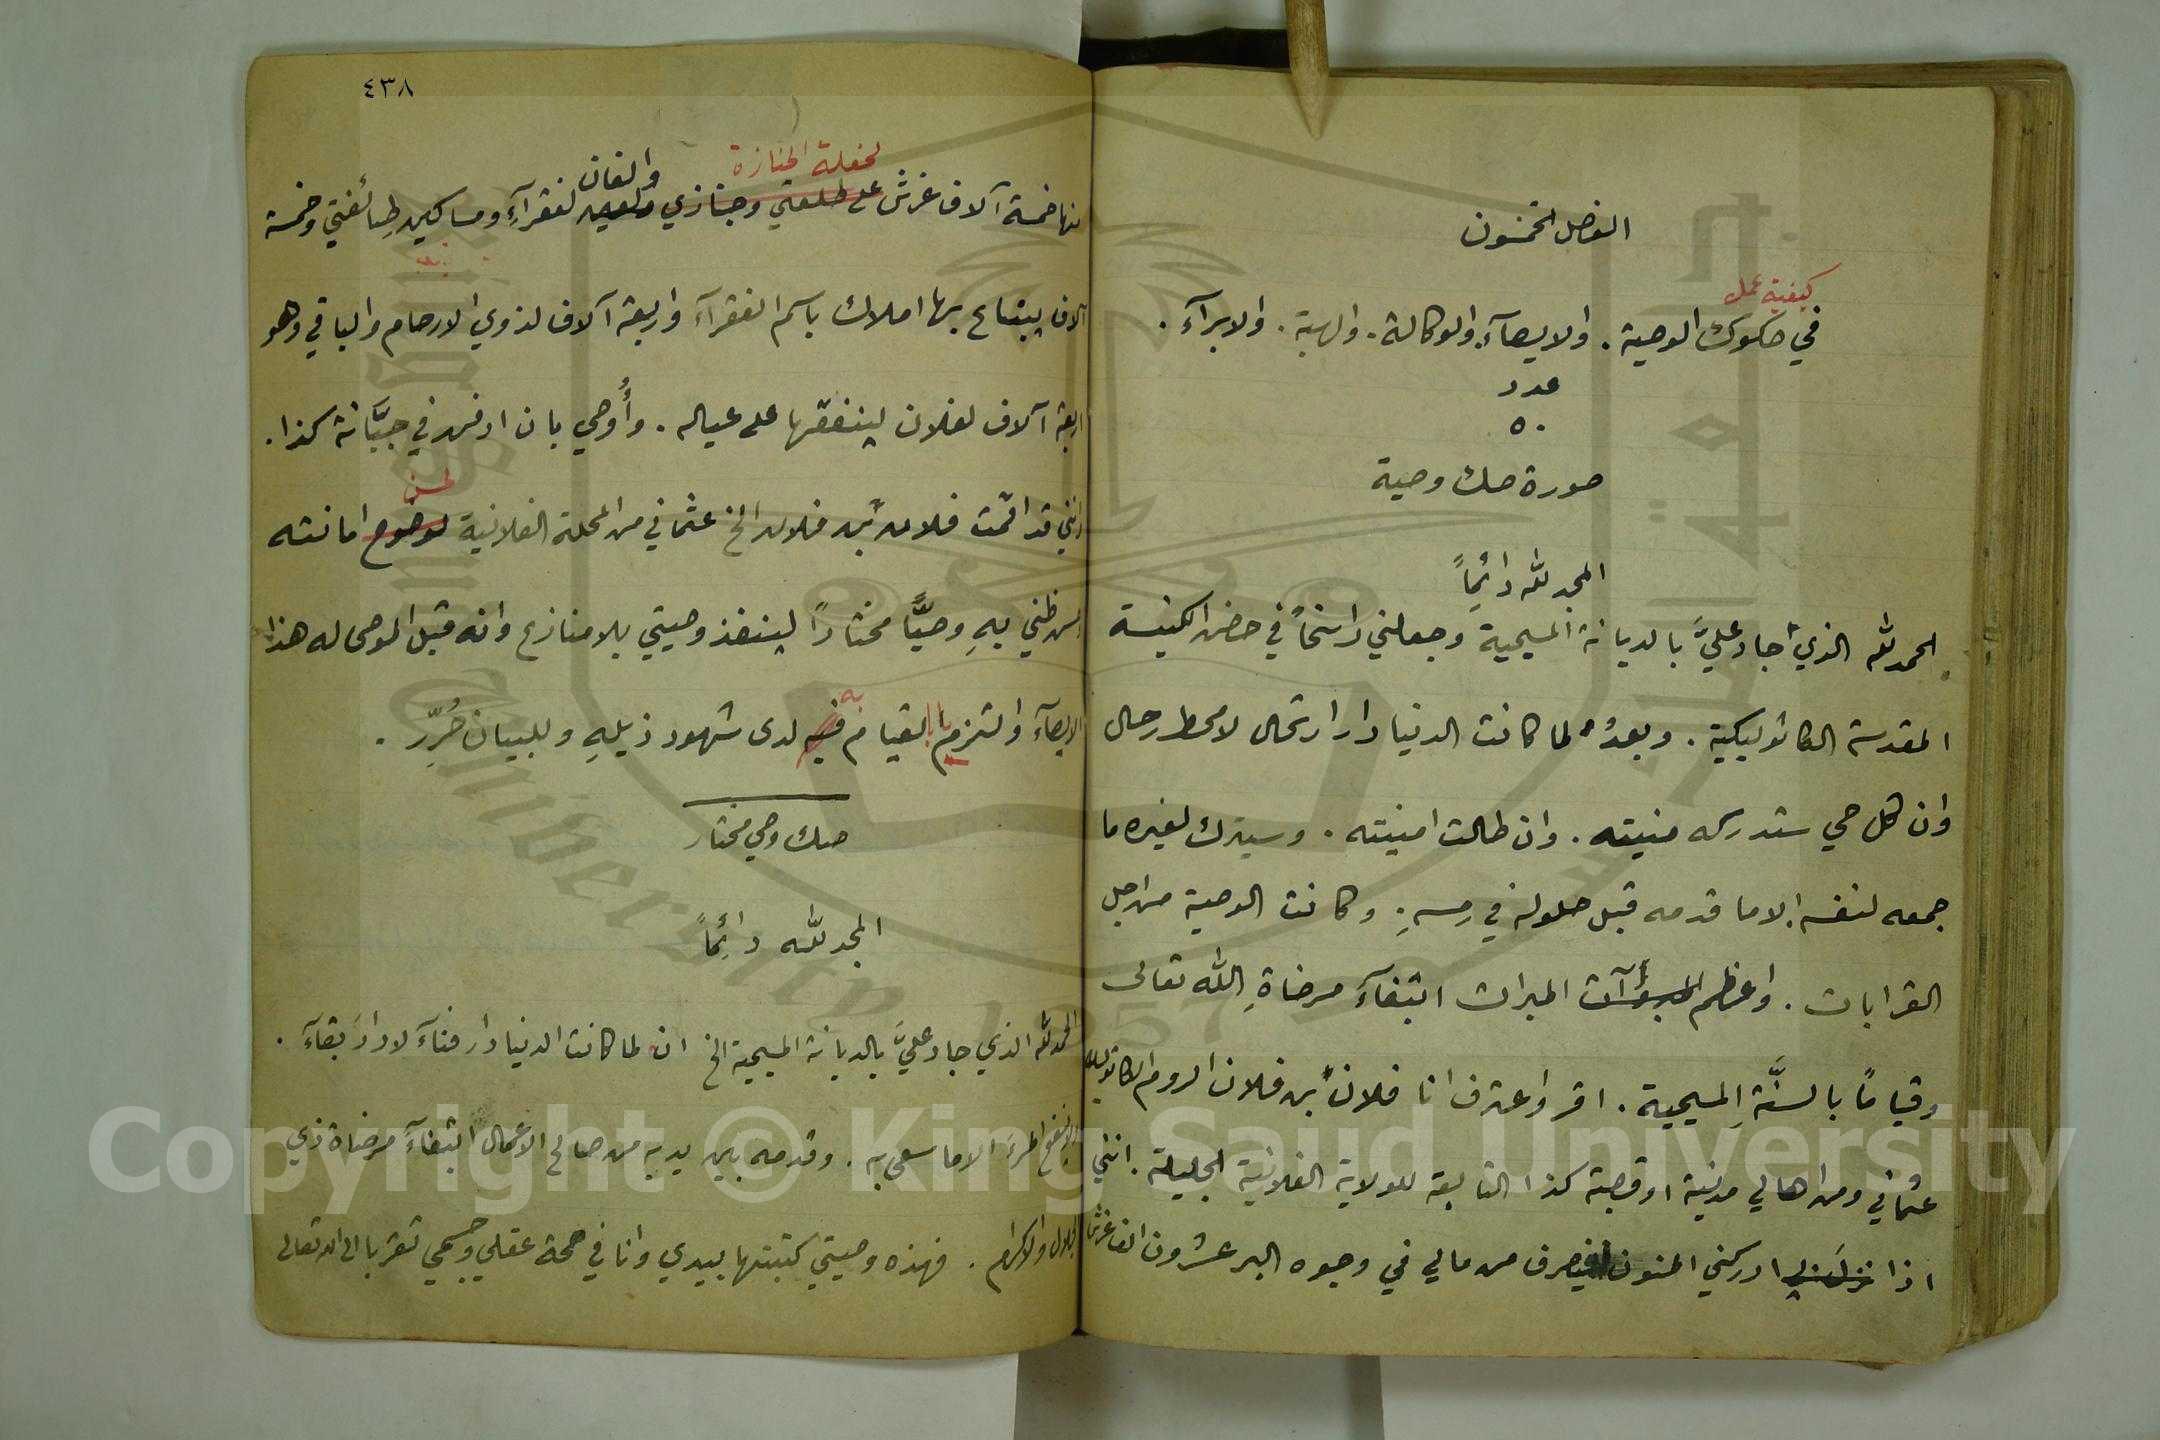 الفصل الخمسون
كيفية عمل
في صكوك الوصية . والايصآء والوكالة . والهبة . والابرآء .
عدد
٥٠
صورة صك وصية
المجد لله دائماً
الحمد لله الذي جاد عليَّ بالديانة المسيحية وجعلني راسخاً في حضن الكنيسة
المقدسة الكاثوليكية . وبعدُ لما كانت الدنيا دار ارتحال لا محط رحال
وان كل حي ستدركه منيته . وان طالت امنيته . وسيترك لغيره ما
جمعه لنفسه الا ما قدمه قبل حلوله في رمسهِ . وكانت الوصية من اجل
القرابات . واعظم المبرات ابتغآء مرضاةِ الله تعالى
وقياماً بالسنَّةِ المسيحية . اقر واعترف انا فلان بن فلان الروم الكاثوليك
عثماني ومن اهالي مدينة او قصبة كذا التابعة للولاية الفلانية الجليلة . انني
اذا ادركني المنون فيصرف من مالي في وجوه البر عشرون الف غرش
٤٣٨
لحفلة الجنازة
والفان
منها خمسة آلاف غرش على طلعتي وجنازتي والفين لفقرآءِ ومساكين طائفتي وخمسة
آلاف يبتاع بها املاك باسم الفقرآء واربعة آلاف لذوي الارحام والباقي وهو
اربعة آلاف لفلان لينفقها على عياله . وأُوصي بان ادفن في جبَّانة كذا .
لحسن
وانني قد اقمت فلان بن فلان الخ عثماني من المحلة الفلانية لوضوح امانته
وحسن ظني بهِ وصيًّا مختاراً لينفذ وصيتي بلا منازع وانه قبل الموصى له هذا
به
الايصآء والتزم بالقيام فيه لدى شهود ذيلهِ وللبيان حُرِّر .
صك وصي مختار
المجد لله دائماً
الحمد لله الذي جاد عليَّ بالديانة المسيحية الخ ان لما كانت الدنيا دار فنآء لا دارَ بقآء .
ولا ينفع المرءَ الا ما سعى به . وقدمه بين يديه من صالح الاعمال ابتغآءَ مرضاة ذي
الجلال والاكرام . فهذه وصيتي كتبتها بيدي وانا في صحة عقلي وجسمي تقربا الى الله تعالى